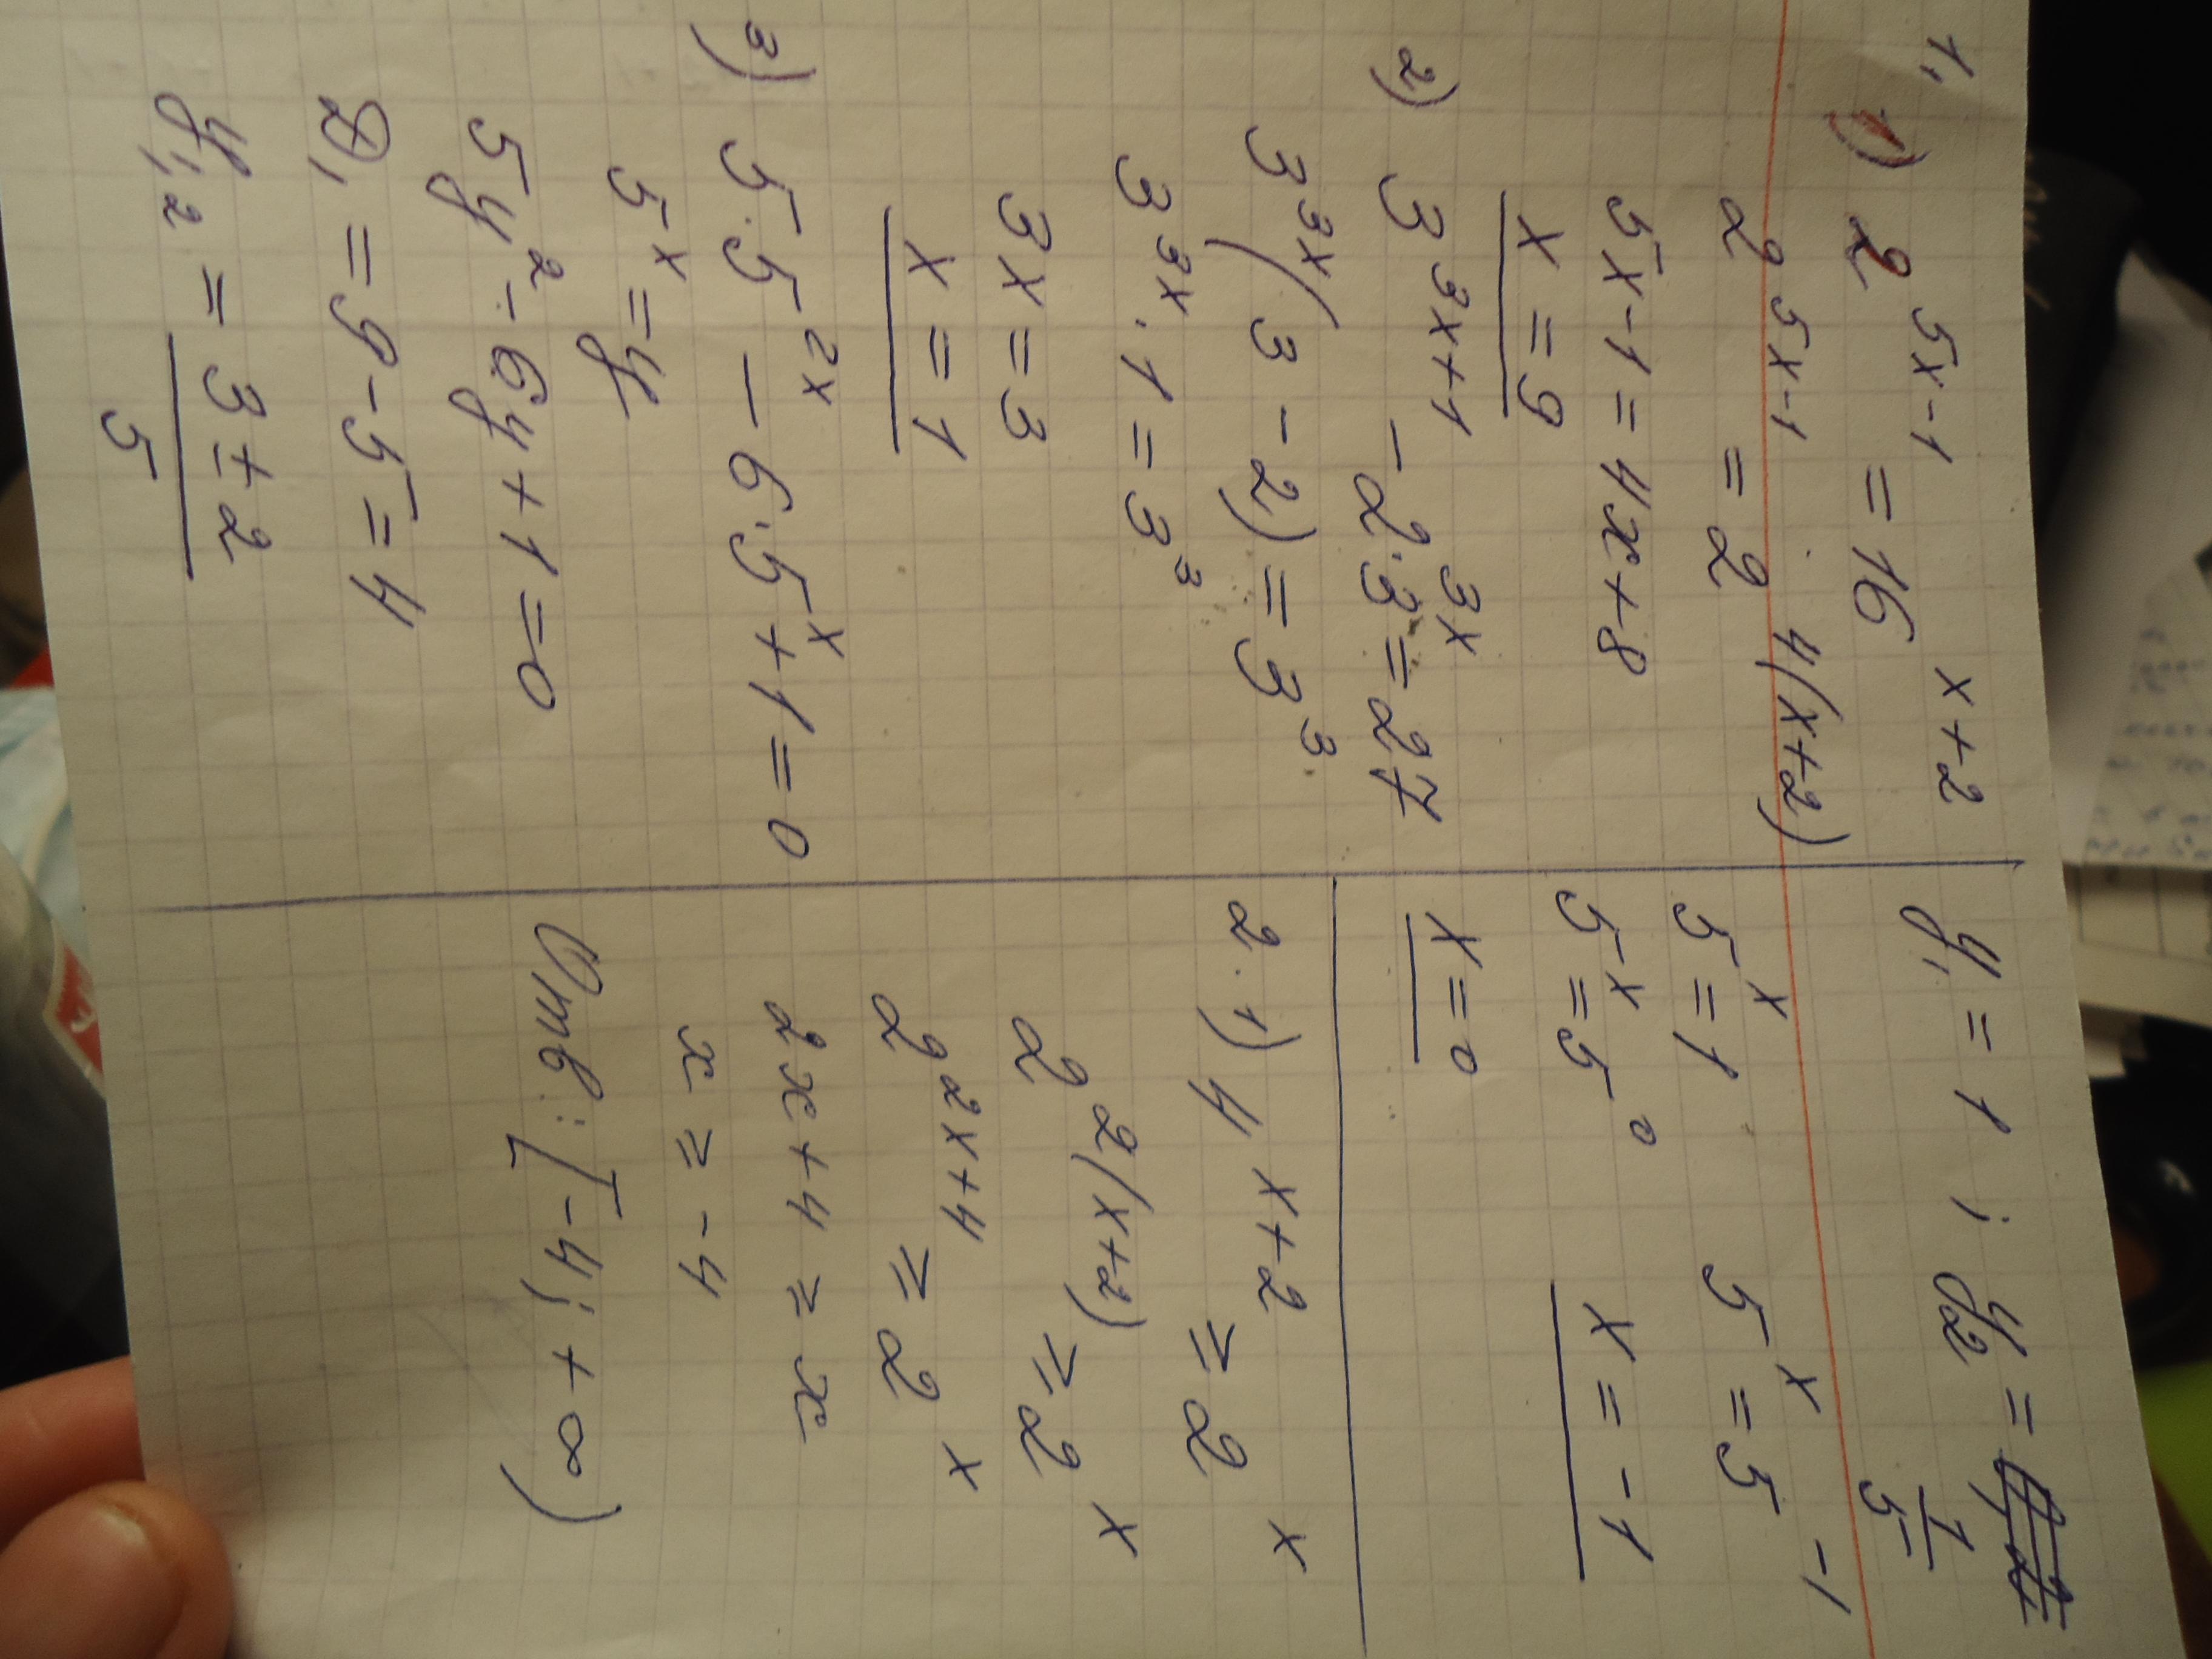 1. 1) 2^(5x-1) = 16^(x+2)
2^(5x-1) = 2^(4(x+2))
5x-1 = 4x+8
x = 9
2) 3^(3x+1) - 2·3^(3x) = 27
3^(3x)(3-2) = 3^3
3^(3x)·1 = 3^3
3x = 3
x = 1
3) 5·5^(2x) - 6·5^x + 1 = 0
5^x = y
5y^2 - 6y + 1 = 0
D₁ = 9-5 = 4
y₁,₂ = (3±2)/5
y₁ = 1 ; y₂ = 1/5
5^x = 1 5^x = 5^(-1)
5^x = 5^0 x = -1
x = 0
2. 1) 4^(x+2) ≥ 2^x
2^(2(x+2)) ≥ 2^x
2^(2x+4) ≥ 2^x
2x+4 ≥ x
x ≥ -4
Отв: [-4; +∞)